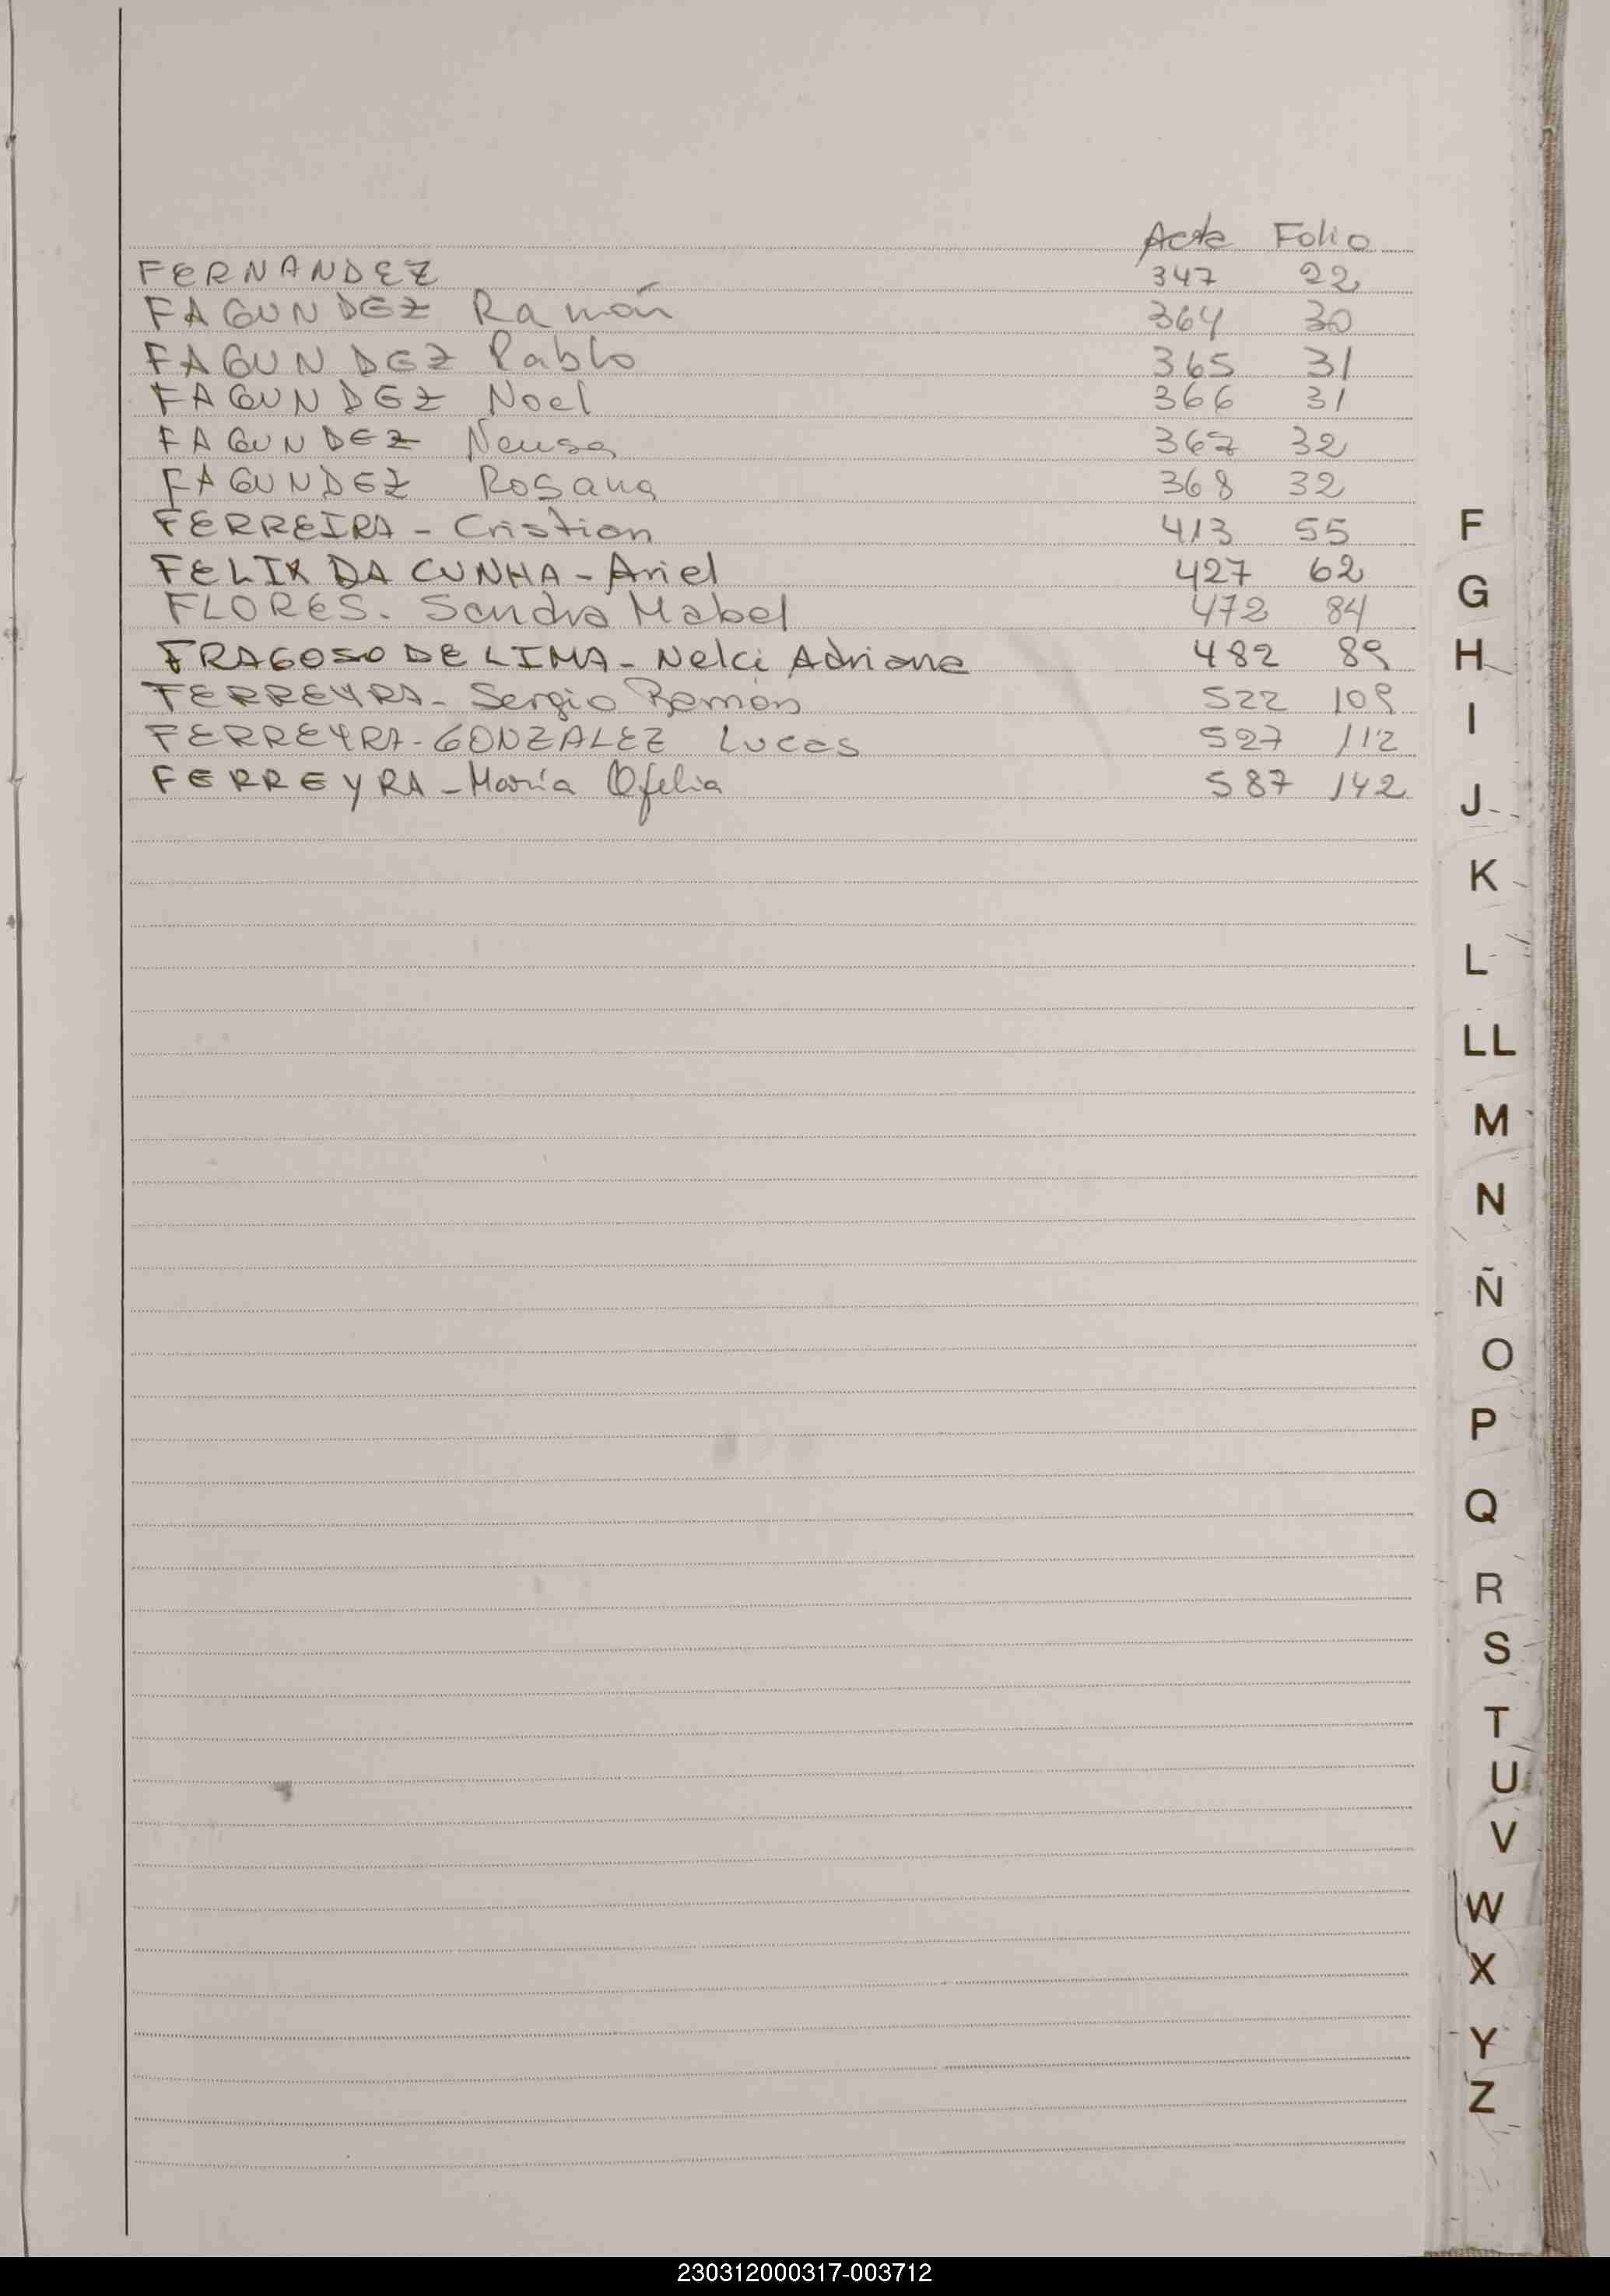 Acta Folio
FERNANDEZ 347 22
FAGUNDEZ Ramón 364 30
FAGUNDEZ Pablo 365 31
FAGUNDEZ Noel 366 31
FAGUNDEZ Neusa 367 32
FAGUNDEZ Rosana 368 32
FERREIRA - Cristian 413 55
FELIX DA CUNHA - Ariel 427 62
FLORES. Sandra Mabel 472 84
FRAGOSO DE LIMA - Nelci Adriana 482 89
FERREYRA - Sergio Ramón 522 109
FERREYRA - GONZALEZ Lucas 527 112
FERREYRA - María Ofelia 587 142
F
G
H
I
J
K
L
LL
M
N
Ñ
O
P
Q
R
S
T
U
V
W
X
Y
Z
230312000317-003712